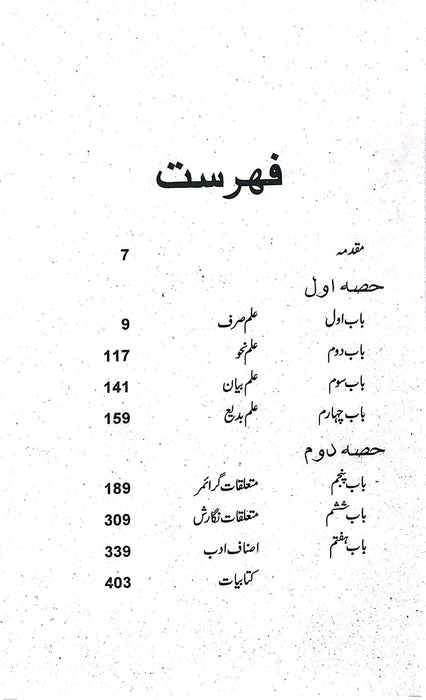 فہرست
مقدمہ 7
حصہ اول
باب اول علم صرف 9
باب دوم علم نحو 117
باب سوم علم بیان 141
باب چہارم علم بدیع 159
حصہ دوم
باب پنجم متعلقات گرائمر 189
باب ششم متعلقات نگارش 309
باب ہفتم اصناف ادب 339
کتابیات 403